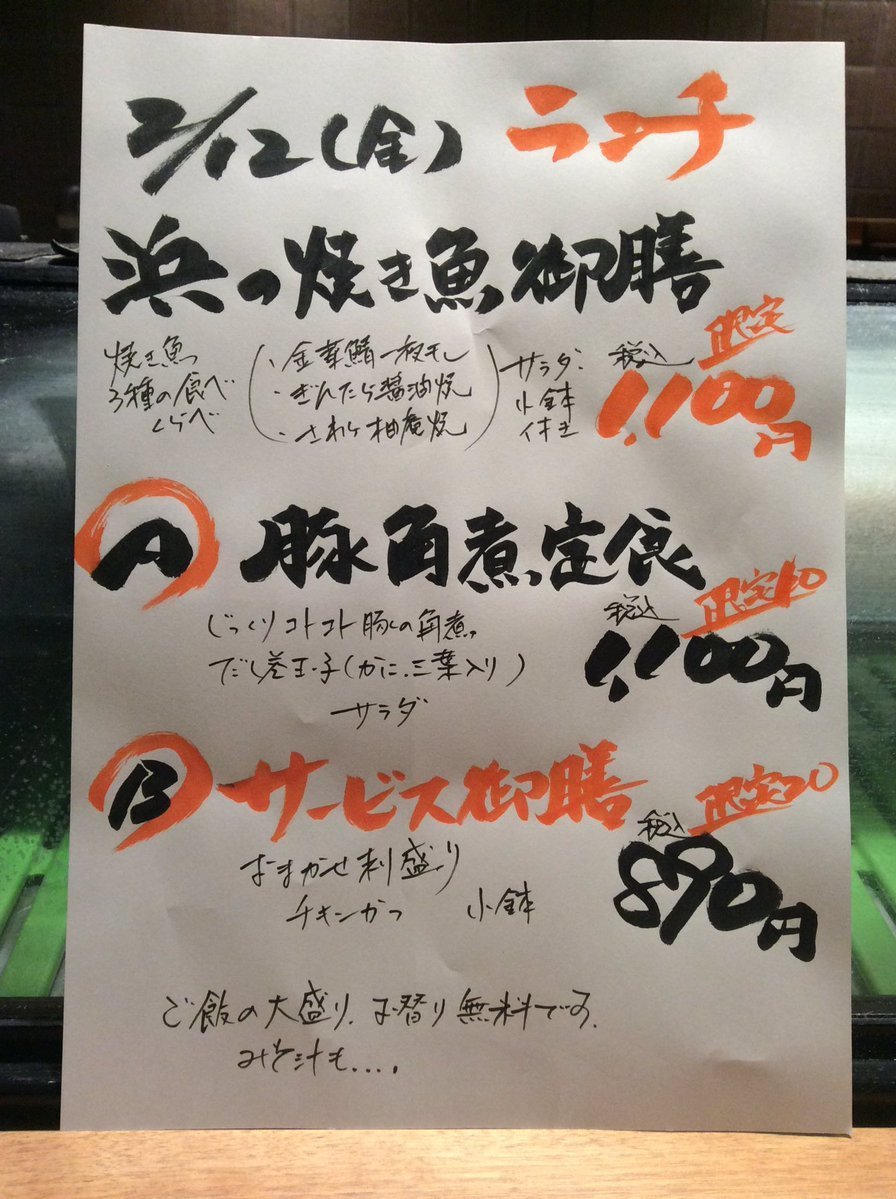 2/12(金) ランチ
浜の焼き魚御膳
限定
焼き魚
3種の食べ
くらべ
(・金華鯖一枚干し
・ぎんだら醤油焼
・さわら柚庵焼)
サラダ・
小鉢
付き
税込
1,100円
A 豚角煮定食
限定10
じっくりコトコト豚の角煮
だし巻玉子(かに、三葉入り)
サラダ
税込
1,100円
B サービス御膳
限定20
おまかせ刺盛り
チキンかつ 小鉢
税込
890円
ご飯の大盛り、お替り無料です。
みそ汁も....